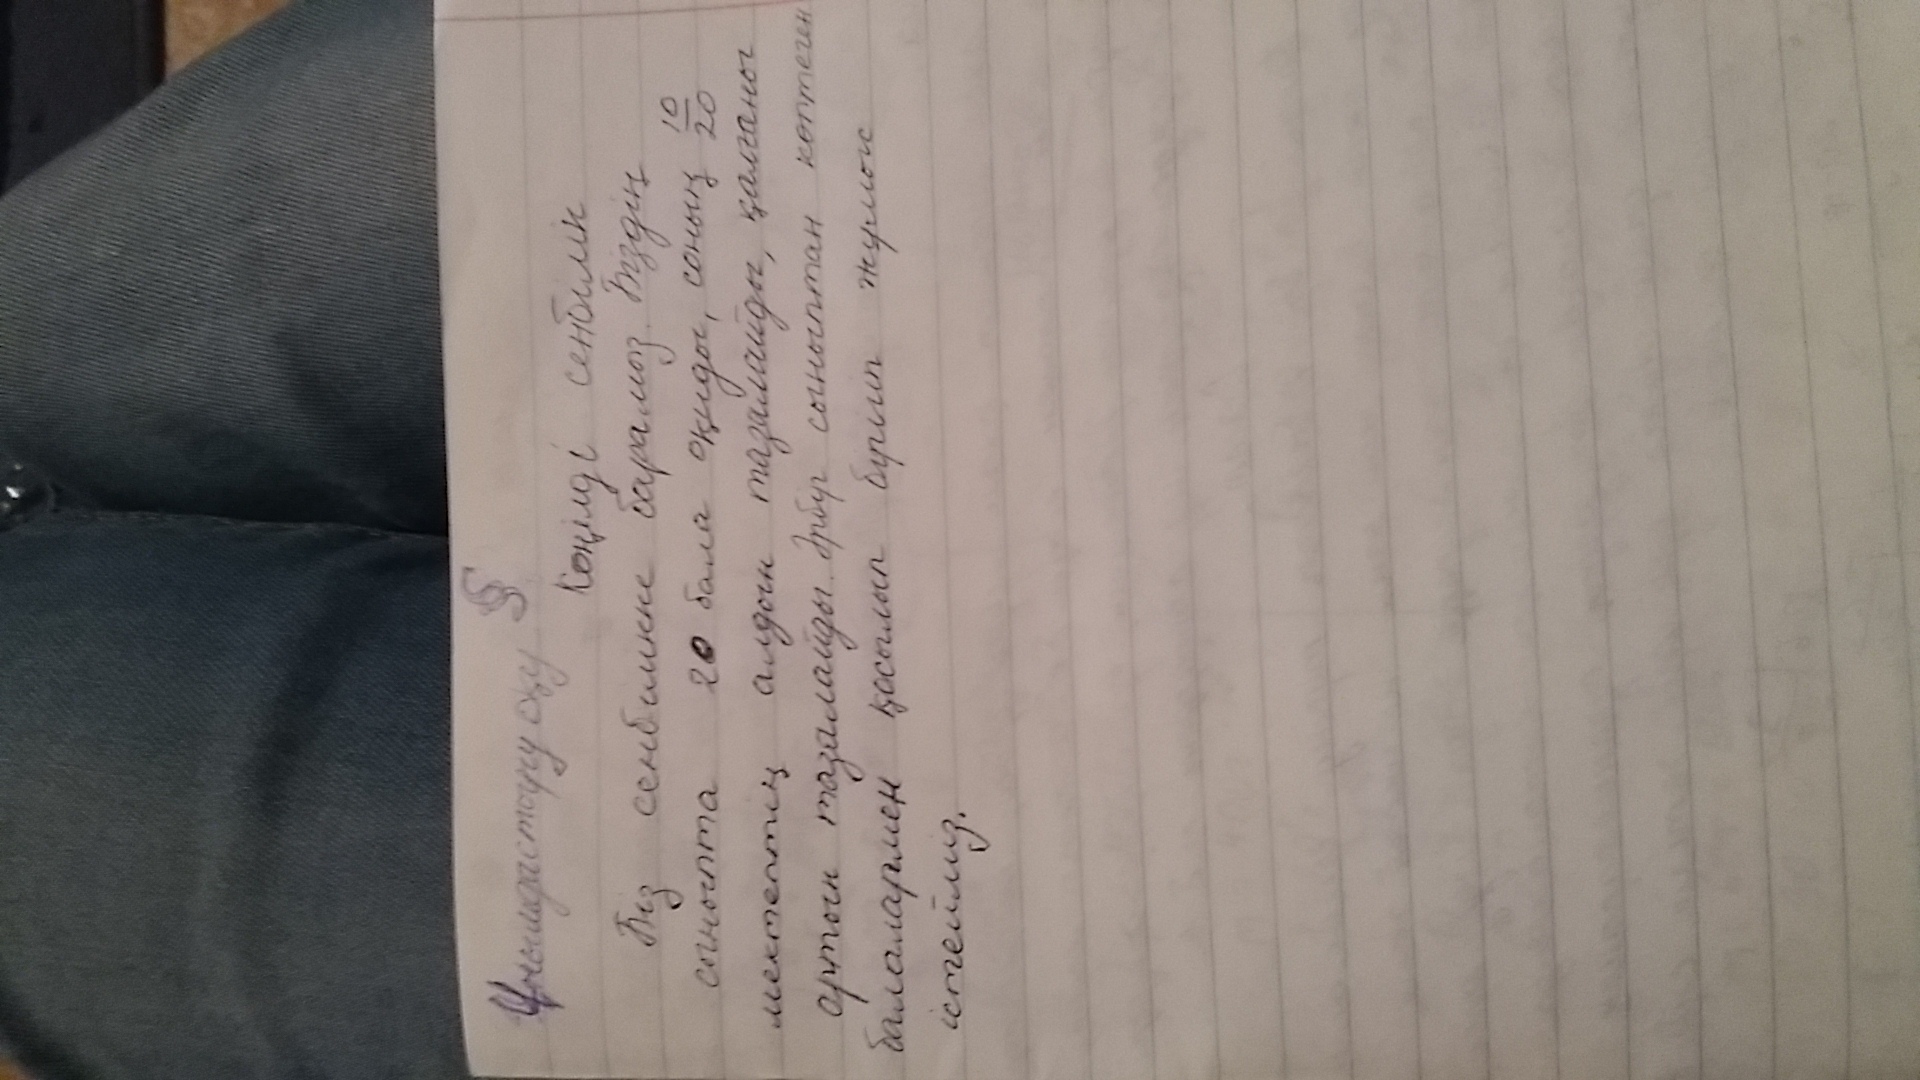 Ұнымдастыру оқу §
Көңілді сенбілік
Біз сенбилике барамыз. Біздің
сыныпта 20 бала оқиды, соның 10/20
мектептің алдын тазалайды, қалғаны
артын тазалайды. Әрбір сыныптан көптеген
балалармен қосылып бүгіліп жұмыс
істейміз.